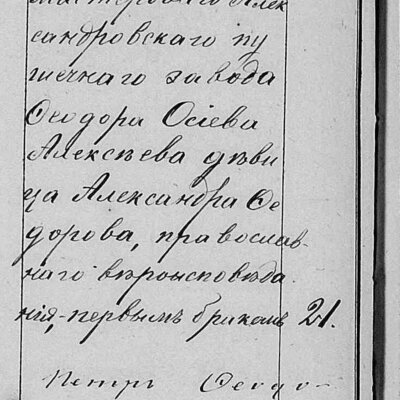 мастероваго Алек
сандровскаго пу
шечнаго завода
Ѳеодора Осіева
Алексѣева дѣви
ца Александра Ѳе
дорова, православ-
наго вѣроисповѣда
нія, первымъ бракомъ 21.
Петръ Ѳеодо-